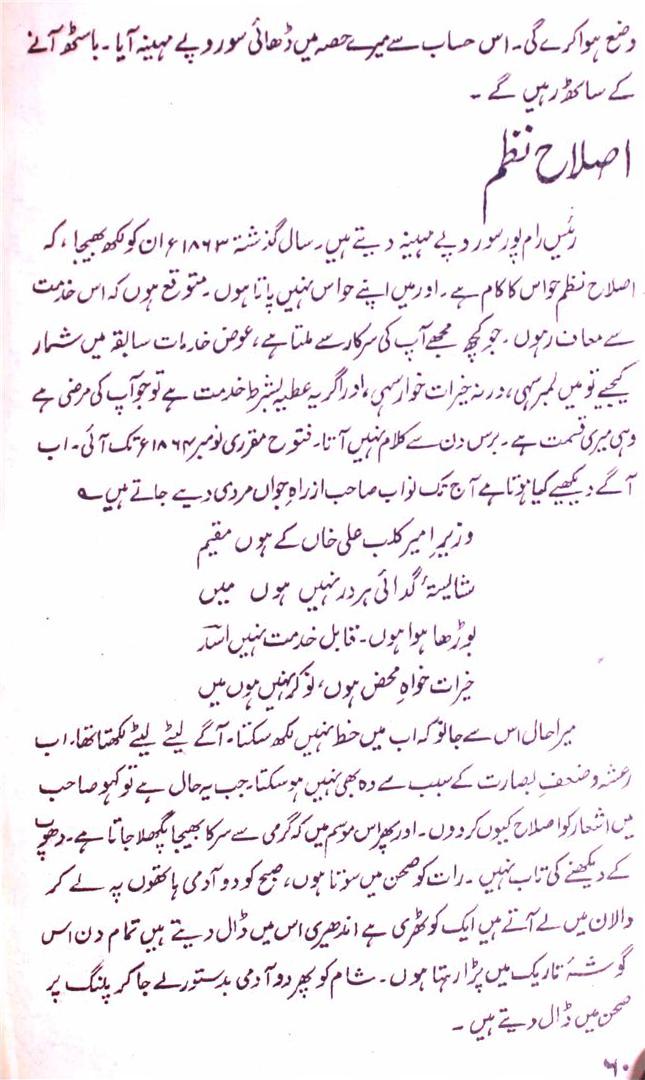 وضع ہوا کرے گی۔ اس حساب سے میرے حصہ میں ڈھائی سو روپے مہینہ آیا۔ باسٹھ آنے
کے ساٹھ رہیں گے۔
اصلاح نظم
رئیس رام پور سو روپے مہینہ دیتے ہیں۔ سال گذشتہ ۱۸۶۳ء ان کو لکھ بھیجا، کہ
اصلاح نظم حواس کا کام ہے۔ اور میں اپنے حواس نہیں پاتا ہوں۔ متوقع ہوں کہ اس خدمت
سے معاف رہوں۔ جو کچھ مجھے آپ کی سرکار سے ملتا ہے، عوض خدمات سابقہ میں شمار
کیجیے تو میں لمبر سہی، ورنہ خیرات خوار سہی، اور اگر یہ عطیہ بشرط خدمت ہے تو جو آپ کی مرضی ہے
وہی میری قسمت ہے۔ برس دن سے کلام نہیں آتا۔ فتوح مقرری نومبر ۱۸۶۴ء تک آئی۔ اب
آگے دیکھیے کیا ہوتا ہے آج تک نواب صاحب از راہِ جواں مردی دیے جاتے ہیں ؎
وزیرِ امیر کلب علی خاں کے ہوں مقیم
شائستۂ گدائی ہر در نہیں ہوں میں
بوڑھا ہوا ہوں۔ قابل خدمت نہیں اسدؔ
خیرات خواہِ محض ہوں، نوکر نہیں ہوں میں
میرا حال اس سے جانو کہ اب میں خط نہیں لکھ سکتا۔ آگے لیٹے لیٹے لکھتا تھا۔ اب
رعشہ و ضعفِ بصارت کے سبب سے وہ بھی نہیں ہو سکتا۔ جب یہ حال ہے تو کہو صاحب
میں اشعار کو اصلاح کیوں کر دوں۔ اور پھر اس موسم میں کہ گرمی سے سر کا بھیجا پگھلا جاتا ہے۔ دھوپ
کے دیکھنے کی تاب نہیں۔ رات کو صحن میں سوتا ہوں، صبح کو دو آدمی ہاتھوں پہ لے کر
دالان میں لے آتے ہیں ایک کوٹھری ہے اندھیری اس میں ڈال دیتے ہیں تمام دن اس
گوشۂ تاریک میں پڑا رہتا ہوں۔ شام کو پھر دو آدمی بدستور لے جا کر پلنگ پر
صحن میں ڈال دیتے ہیں۔
۶۰